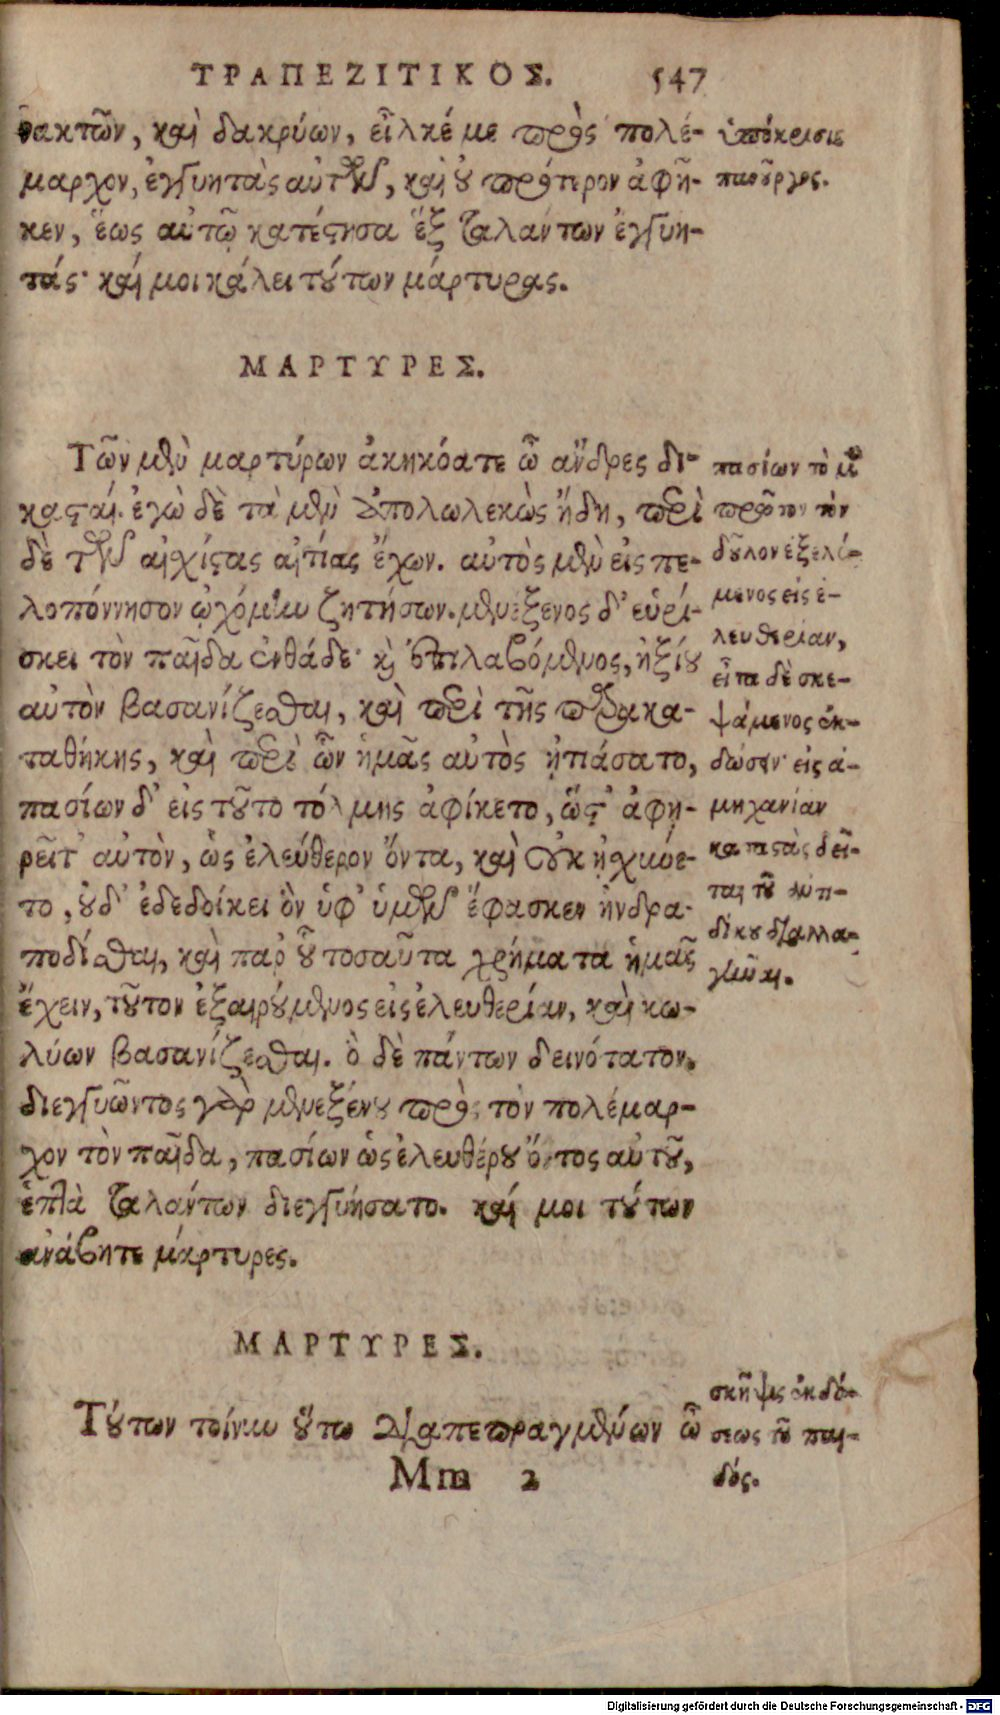 ΤΡΑΠΕΖΙΤΙΚΟΣ. 547
νακτῶν, καὶ δακρύων, εἷλκέ με πρὸς πολέ-
μαρχον, ἐγγυητὰς αὐτῶν, καὶ οὐ πρότερον ἀφῆ-
κεν, ἕως αὐτῷ κατέστησα ἓξ ταλάντων ἐγγυη-
τάς· καί μοι κάλει τούτων μάρτυρας.
ὑπόκρισις
πανοῦργος.
ΜΑΡΤΥΡΕΣ.
Τῶν μὲν μαρτύρων ἀκηκόατε ὦ ἄνδρες δι-
κασταί. ἐγὼ δὲ τὰ μὲν ἀπολωλεκὼς ἤδη, περὶ
δὲ τῶν αἰσχίστας αἰτίας ἔχων. αὐτὸς μὲν εἰς πε-
λοπόννησον ᾠχόμην ζητήσων. μενέξενος δ' εὑρί-
σκει τὸν παῖδα ἐνθάδε· καὶ ἐπιλαβόμενος, ἠξίου
αὐτὸν βασανίζεσθαι, καὶ περὶ τῆς παρακα-
ταθήκης, καὶ περὶ ὧν ἡμᾶς αὐτὸς ᾐτιάσατο,
πασίων δ' εἰς τοῦτο τόλμης ἀφίκετο, ὥστ' ἀφῃ-
ρεῖτ' αὐτὸν, ὡς ἐλεύθερον ὄντα, καὶ οὐκ ᾐσχύνε-
το, οὐδ' ἐδεδοίκει ὃν ὑφ' ὑμῶν ἔφασκεν ἠνδρα-
ποδίσθαι, καὶ παρ' οὗ τοσαῦτα χρήματα ἡμᾶς
ἔχειν, τοῦτον ἐξαιρούμενος εἰς ἐλευθερίαν, καὶ κω-
λύων βασανίζεσθαι. ὃ δὲ πάντων δεινότατον.
διεγγυῶντος γὰρ μενεξένου πρὸς τὸν πολέμαρ-
χον τὸν παῖδα, πασίων ὡς ἐλευθέρου ὄντος αὐτοῦ,
ἑπτὰ ταλάντων διεγγυήσατο. καί μοι τούτων
ἀνάβητε μάρτυρες.
πασίων τὸ μὲν
πρῶτον τὸν
δοῦλον ἐξελό-
μενος εἰς ἐ-
λευθερίαν,
εἶτα δὲ σκε-
ψάμενος ἐκ-
δώσειν· εἰς ἀ-
μηχανίαν
καταστὰς δεῖ-
ται τοῦ ἀντι-
δίκου διαλλα-
γῆναι.
ΜΑΡΤΥΡΕΣ.
Τούτων τοίνυν οὕτω διαπεπραγμένων ὦ
Mm 2
σκῆψις ἐκδό-
σεως τοῦ παι-
δός.